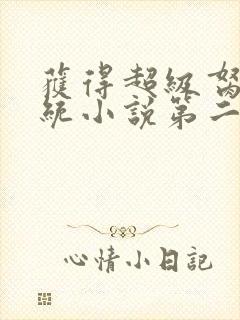 獲得超級
統小說第二
心情小日記